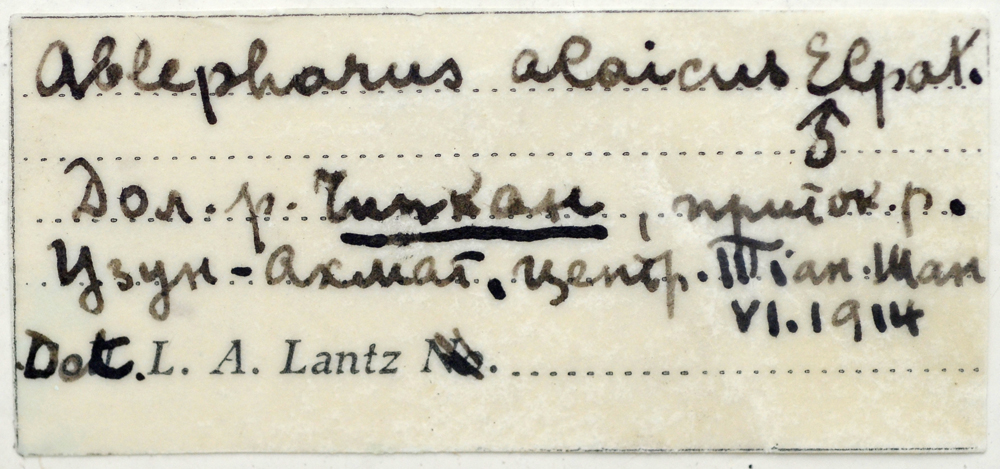 Ablepharus alaicus Elpat.
♂
Дол. р. Чичкан, приток р.
Узун-Ахмат, центр. Тіан Шан
VI. 1914
Dott. L. A. Lantz